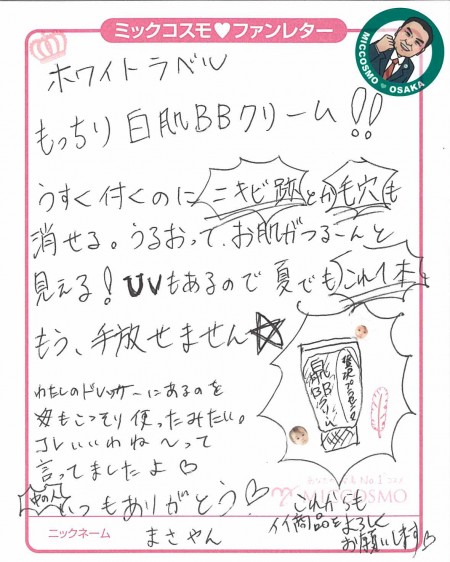 ミックコスモ♥ファンレター
MICCOSMO ♥ OSAKA
ホワイトラベル
もっちり白肌BBクリーム!!
うすく付くのにニキビ跡とか毛穴も
消せる。うるおって、お肌がつるーんと
見える!UVもあるので夏でもこれ1本♪
もう、手放せません☆
わたしのドレッサーにあるのを
もこっそり使ったみたい。
コレいいわね〜って
言ってましたよ♡
いつもありがとう♡
白肌
BB
クリーム
No.1
MICCOSMO
これからも
イイ商品をよろしく
お願いします♡
ニックネーム
まさやん